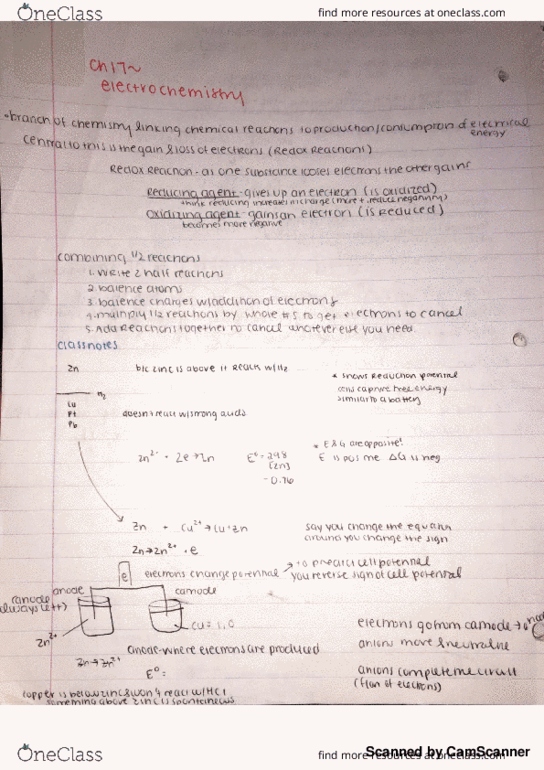 OneClass find more resources at oneclass.com
Ch 17~
electrochemistry
branch of chemistry linking chemical reactions to production/consumption of electrical
energy
central to this is the gain & loss of electrons (Redox Reactions)
Redox Reaction - as one substance looses electrons the other gains
Reducing agent - gives up an electron (is oxidized)
think reducing increases in charge (more +, reduce negativity)
oxidizing agent - gains an electron (is Reduced)
becomes more negative
combining 1/2 reactions
1. Write 2 half reactions
2. balence atoms
3. balence charges w/addition of electrons
4. multiply 1/2 reactions by whole #s to get electrons to cancel
5. Add Reactions together to cancel whatever else you need
class notes
Zn b/c zinc is above it React w/H2
* shows Reduction potential
cens capture free energy
similar to a battery
H2
Cu
Pt
Pb
doesn't react w/strong acids
* E & G are opposite!
Zn2+ + 2e → Zn E° = 298 E is pos me ΔG is neg
(Zn)
-0.76
Zn + Cu2+ → Cu + Zn say you change the equatn
around you change the sign
Zn → Zn2+ + e
to predict cell potential
e electrons change potential → you reverse sign of cell potential
anode cathode
(anode
always left)
Cu = 1.0
electrons go from cathode →
Zn2+
anode - where electrons are produced anions move & neutralize
Zn → Zn2+
E° =
anions complete circuit
(flow of electrons)
copper is below zinc & won't react w/HCl
something above zinc is spontaneous
OneClass find more resources at oneclass.com
Scanned by CamScanner